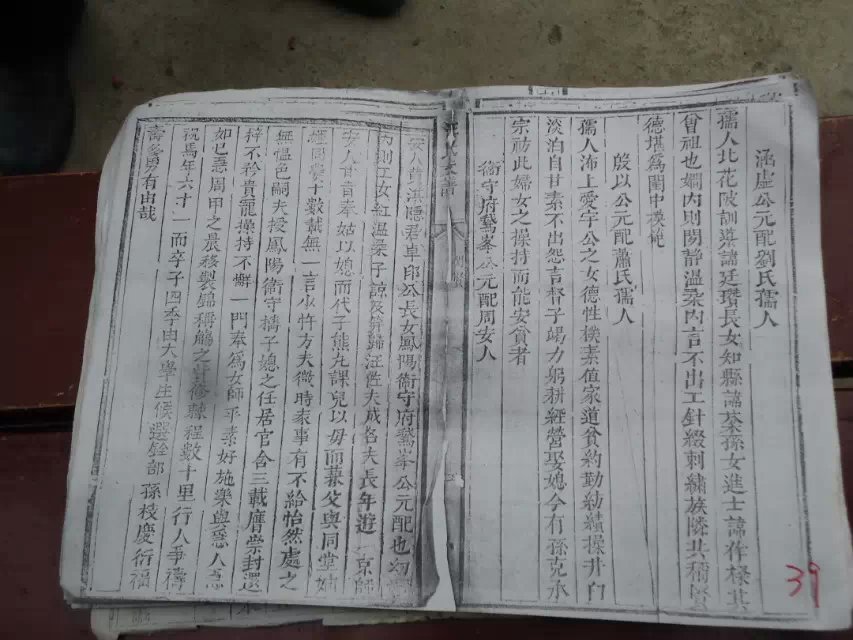 涵虛公元配劉氏孺人
孺人北花陂訓導諱廷瓚長女知縣諱棻孫女進士諱作樑其
曾祖也嫻內則閑靜溫柔內言不出工針綴刺繡族隣共稱賢
德堪為閨中模範
殷以公元配蕭氏孺人
孺人沛上爰字公之女德性樸素值家道貧約勤紡績操井臼
淡泊自甘素不出怨言督子竭力躬耕經營娶媳今有孫克承
宗祊此婦女之操持而能安貧者
衞守府鰲峯公元配周安人
安人黃淇隱君卓印公長女鳳陽衞守府鰲峯公元配也幼
內則工女紅溫柔子諒及笄歸汪佐夫成名夫長年遊京師
安人甘旨奉姑以媳而代子熊丸課兒以母而兼父與同堂妯
娌周旋十數載無一言少忤方夫微時家事有不給怡然處之
無慍色嗣夫授鳳陽衞守携子媳之任居官舍三載膺榮封還
持不矜貴寵操持不懈一門奉為女師乎素好施樂與惡人急
如己惡周甲之晨移製錦稱觴之
程數十里行人爭禱
祝焉年六十一而卒子四季由大學生候選銓部孫枝慶衍福
壽多男有由哉
39